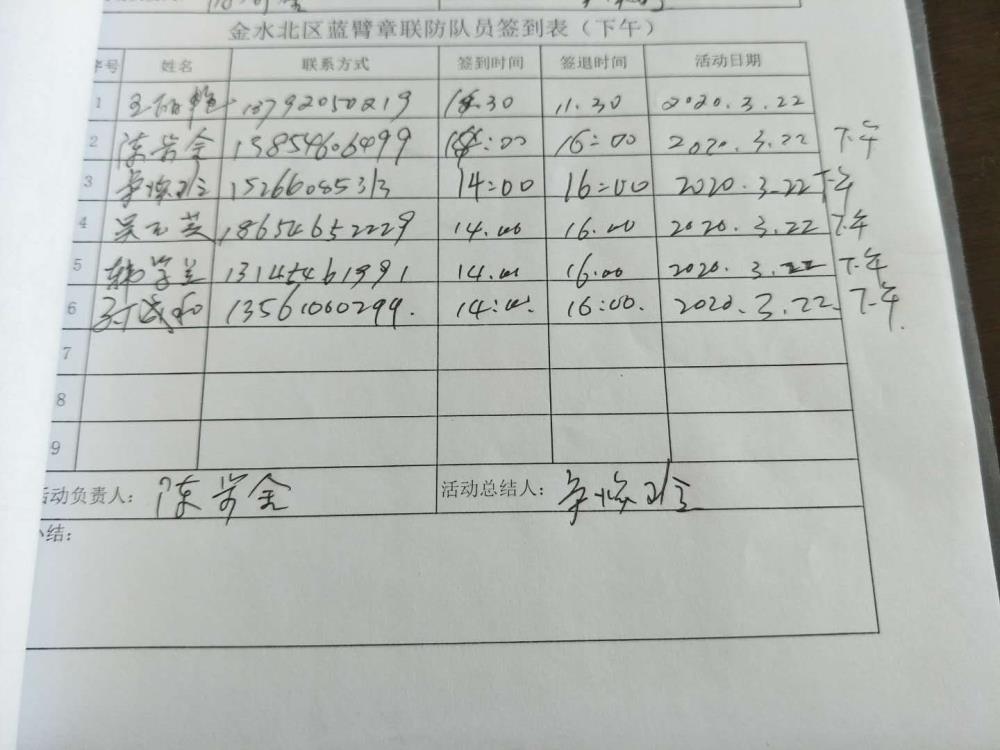 金水北区蓝臂章联防队员签到表（下午）
序号 姓名 联系方式 签到时间 签退时间 活动日期
1 13792050219 11.30 2020.3.22
2 陈岩金 15854606099 16:00 2020.3.22 下午
3 15266085313 14:00 16:00 2020.3.22 下午
4 吴玉英 18654652229 14.00 16.00 2020.3.22 下午
5 韩学兰 13145461991 14.00 16.00 2020.3.22 下午
6 13561060299. 14:00. 16:00. 2020.3.22 下午.
7
8
9
活动负责人： 陈岩金 活动总结人：
小结：